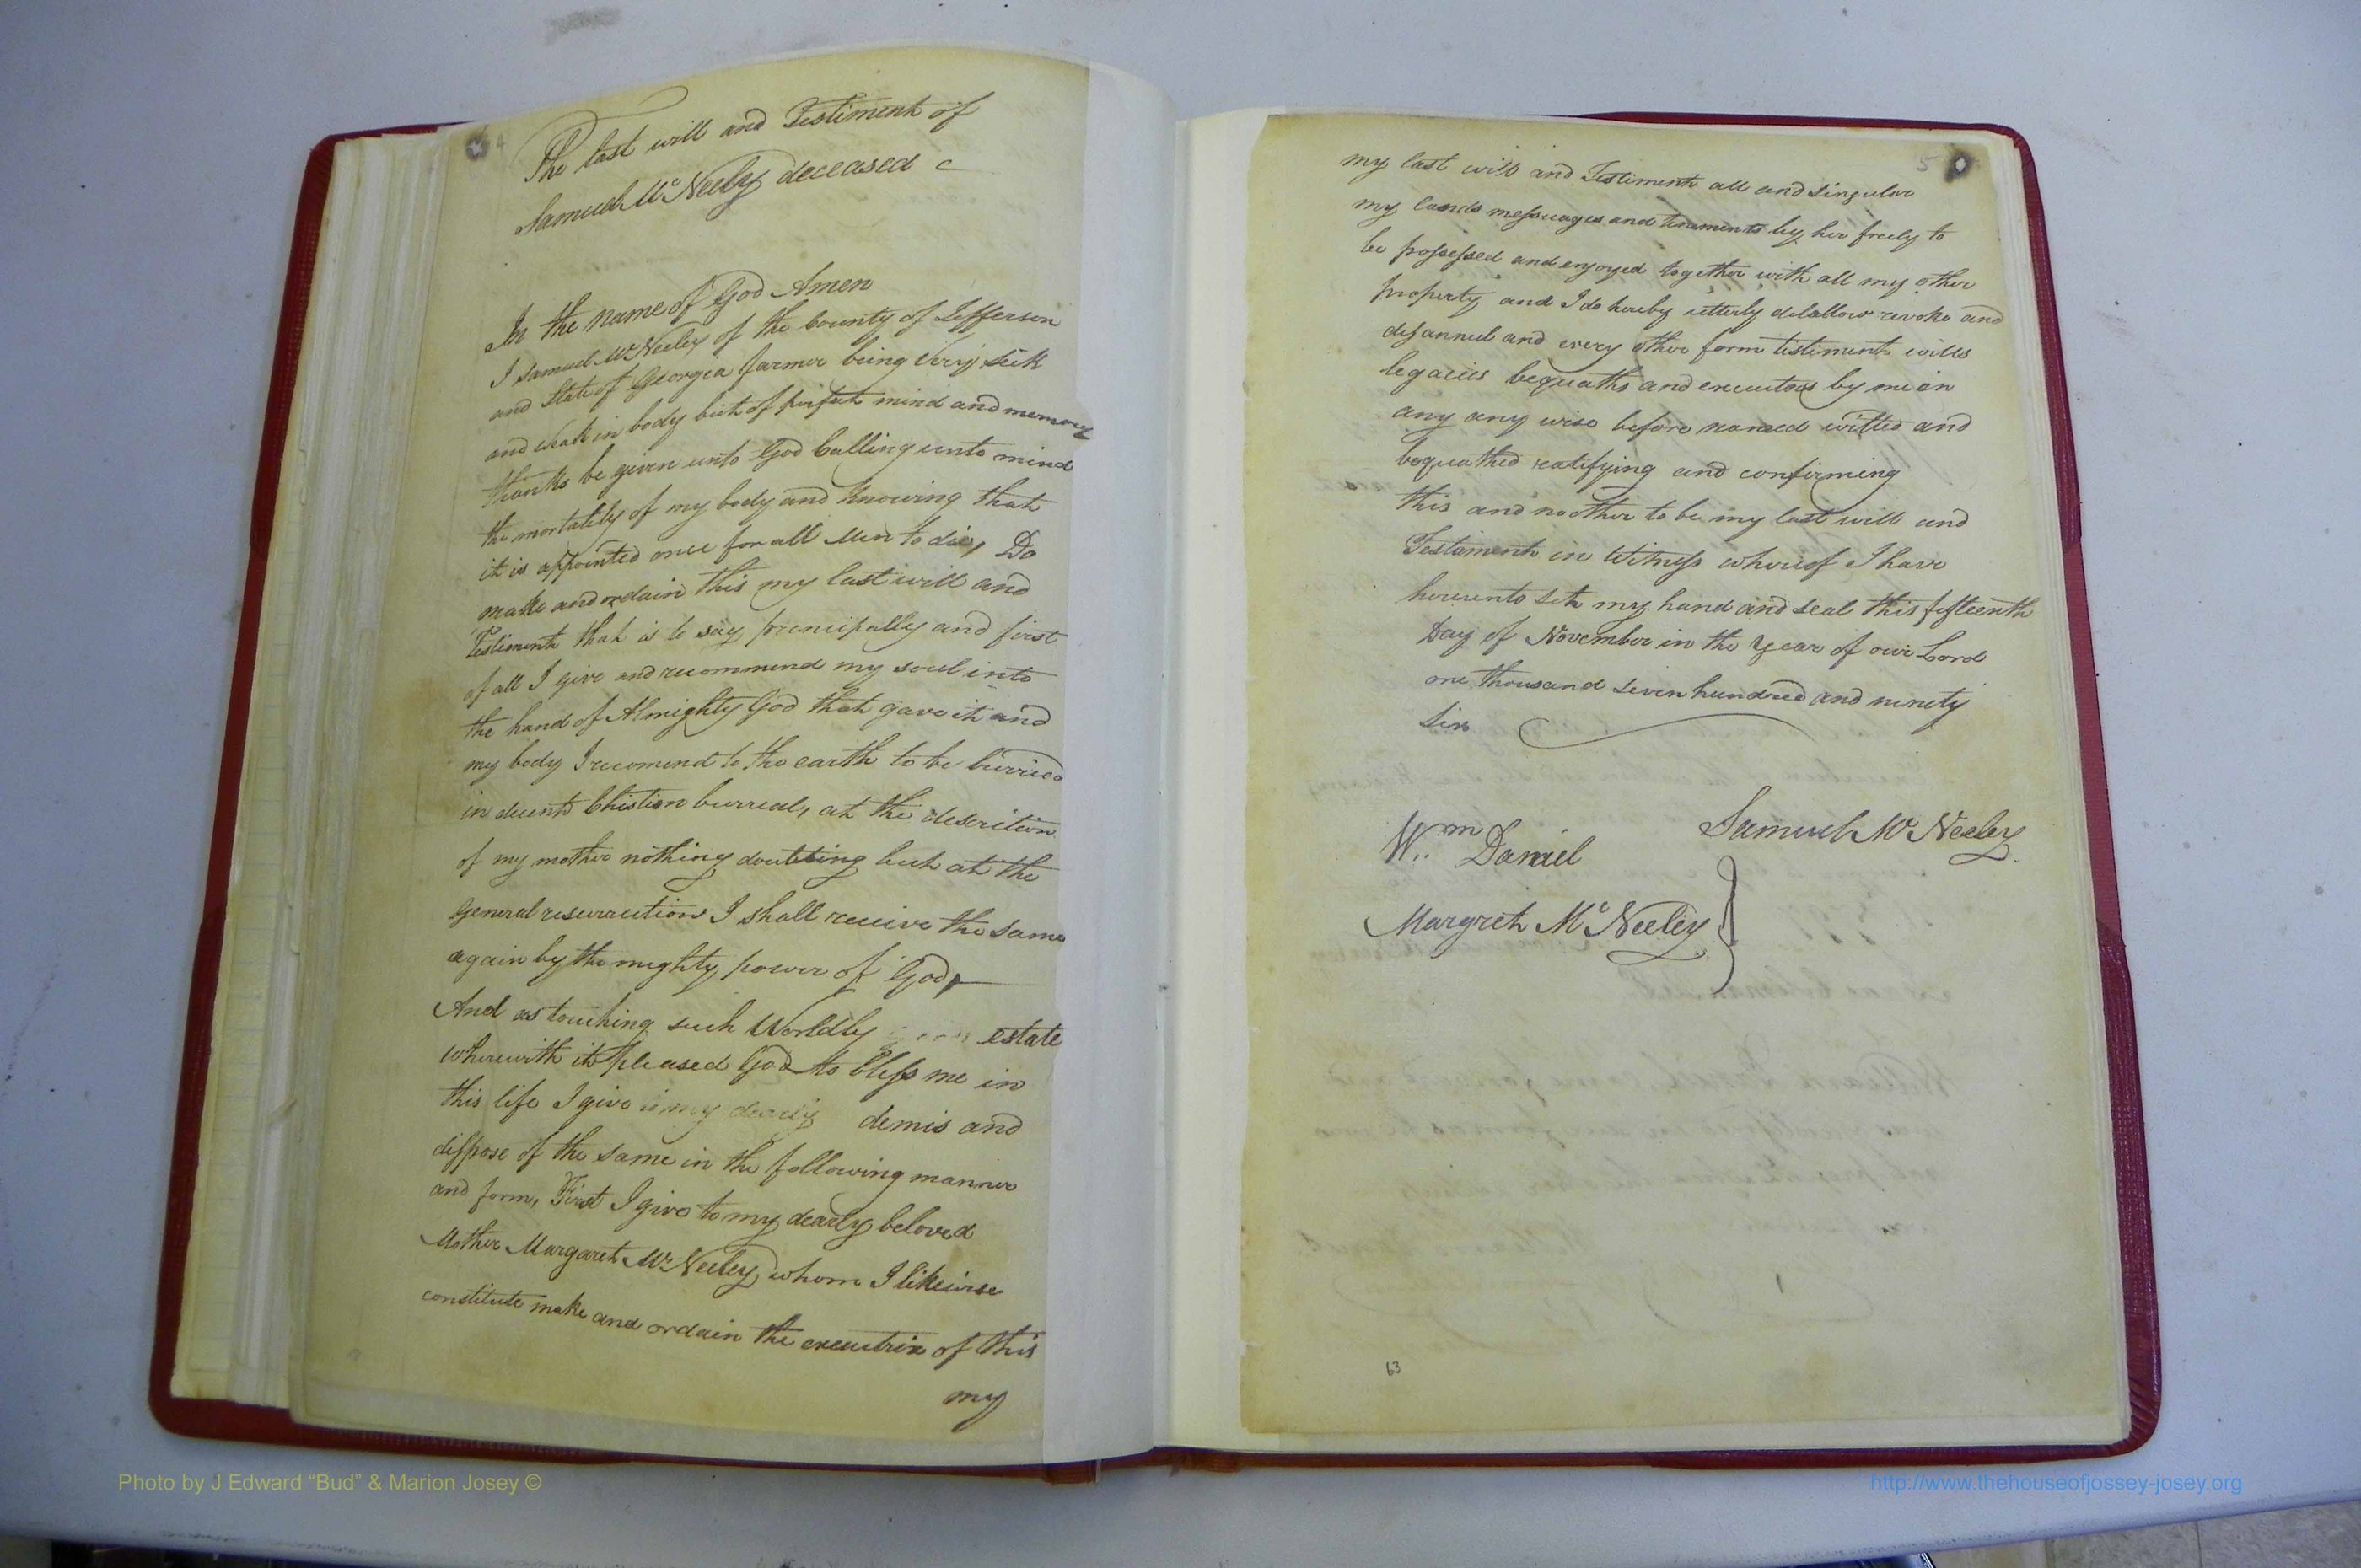 4
The last will and Testiment of
Samuel Mc Neely deceased
In the name of God Amen
I Samuel Mc Neeley of the County of Jefferson
and State of Georgia farmer being Very Sick
and weak in body but of perfect mind and memory
thanks be given unto God Calling unto mind
the mortality of my body and Knowing that
it is appointed once for all Men to die, Do
make and ordain this my last will and
Testiment that is to say principally and first
of all I give and recommend my soul into
the hand of Almighty God that gave it and
my body I recomend to the earth to be burried
in decent Chistian burreal, at the descrition
of my mother nothing doubting but at the
General resurrection I shall receive the same
again by the mighty power of God,
And as touching such Worldly estate
wherewith it pleased God to bless me in
this life I give to my dearly demis and
dispose of the same in the following manner
and form, First I give to my dearly beloved
Mother Margaret Mc Neeley whom I likewise
constitute make and ordain the executrix of this
my
5
my last will and Testiment all and singular
my lands messuages and tenaments by her freely to
be possessed and enjoyed together with all my other
property and I do hereby utterly disallow revoke and
disannul and every other form testiment wills
legacies bequaths and executors by me in
any any wise before named willed and
bequathed ratifying and confirming
this and no other to be my last will and
Testament in Witness whereof I have
hereunto set my hand and seal this fifteenth
Day of November in the Year of our Lord
one thousand seven hundred and ninety
six
Samuel Mc Neeley
Wm Daniel
Margreth Mc Neeley
63
Photo by J Edward “Bud” & Marion Josey ©
http://www.thehouseofjossey-josey.org